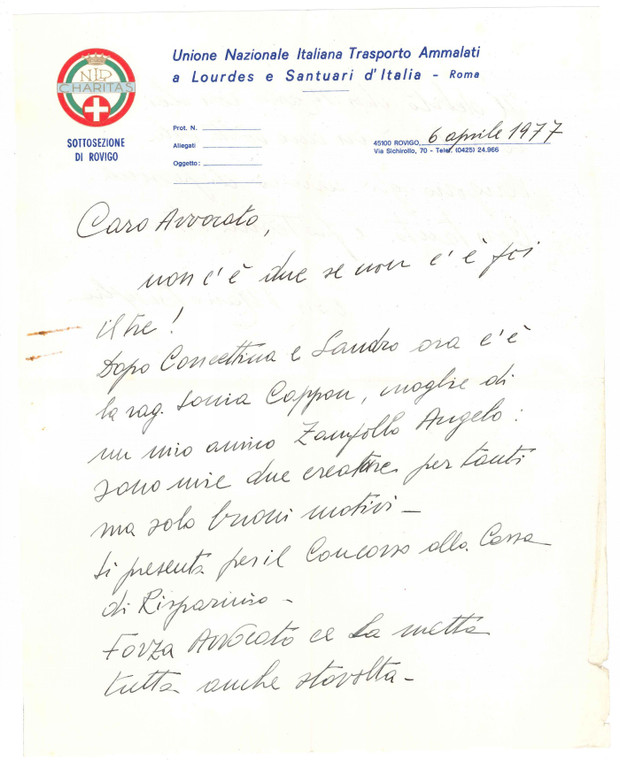 Unione Nazionale Italiana Trasporto Ammalati
a Lourdes e Santuari d'Italia - Roma
CHARITAS
SOTTOSEZIONE
DI ROVIGO
Prot. N.
Allegati
Oggetto:
45100 ROVIGO, 6 aprile 1977
Via Sichirollo, 70 - Telef. (0425) 24.966
Caro Avvocato,
non c'è due se non c'è poi
il tre!
Dopo Concettina e Sandro ora c'è
la rag. Sonia Cappon, moglie di
un mio amico Zampollo Angelo:
sono mie due creature per tanti
ma solo buoni motivi -
Si presenta per il Concorso alla Cassa
di Risparmio -
Forza Avvocato ce la metta
tutta anche stavolta -